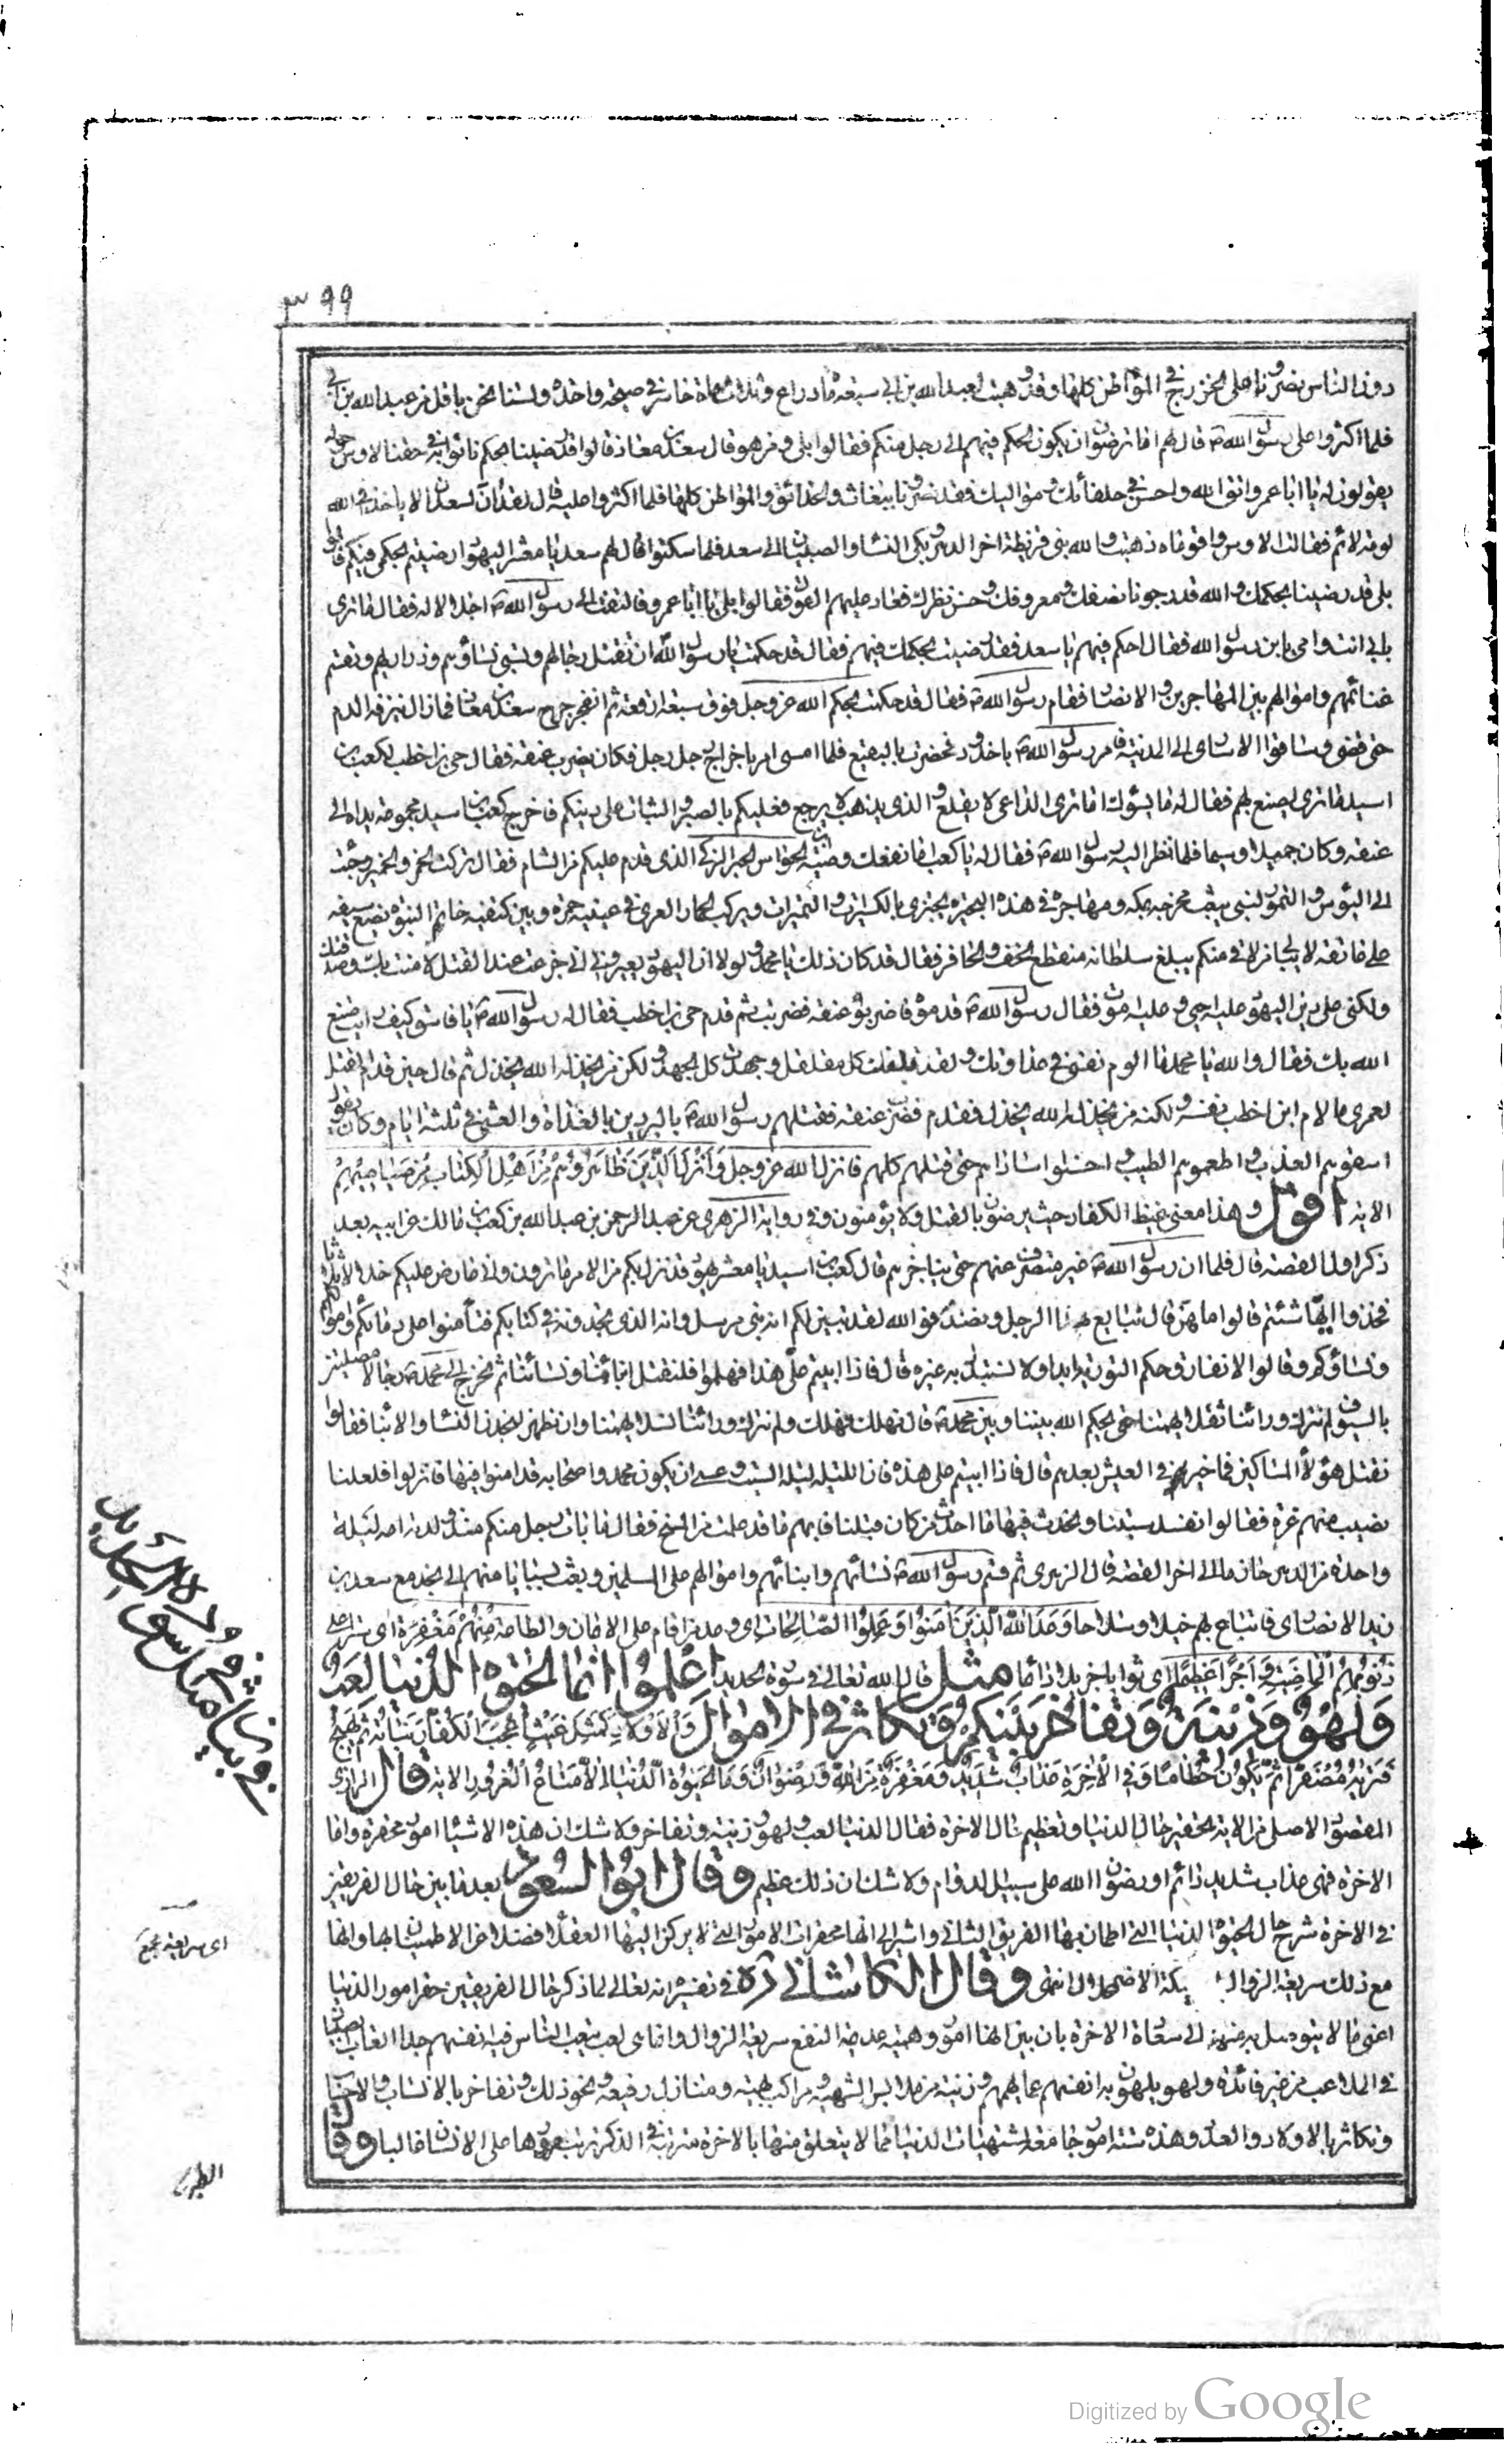 ٣٩٩
دون الناس نصرونا على الخزرج في المواطن كلها وقد وهبت لعبد الله بن ابي سبعمائة دراع وثلاثمائة حاسر في صبيحة واحدة ولسنا نحن باقل من عبد الله بن ابي
فلما اكثروا على رسول الله ص قال لهم اما ترضون ان يكون الحكم فيهم الى رجل منكم فقالوا بلى ومن هو قال سعد بن معاذ قالوا قد رضينا بحكمه فاتوا به في محفة والاوس حوله
يقولون له يا ابا عمرو اتق الله واحسن في حلفائك ومواليك فقد نصرونا ببغاث والحدائق والمواطن كلها فلما اكثروا عليه قال لقد آن لسعد ان لا ياخذه في الله
لومة لائم فقالت الاوس واقوماه ذهبت والله بنو قريظة اخر الدهر وبكى النساء والصبيان الى سعد فلما سكتوا قال لهم سعد يا معشر اليهود ارضيتم بحكمي فيكم قالوا
بلى قد رضينا بحكمك والله قد رجونا نصفك ومعروفك وحسن نظرك فعاد عليهم القول فقالوا بلى يا ابا عمرو فالتفت الى رسول الله ص اجلالا له فقال ما ترى
بابي انت وامي يا رسول الله فقال احكم فيهم يا سعد فقد رضيت بحكمك فيهم فقال قد حكمت يا رسول الله ان تقتل رجالهم وتسبى نساؤهم وذراريهم وتقسم
غنائمهم واموالهم بين المهاجرين والانصار فقام رسول الله ص فقال قد حكمت بحكم الله عز وجل فوق سبعة ارقعة ثم انفجر جرح سعد بن معاذ فما زال ينزفه الدم
حتى قضى وساقوا الاسارى الى المدينة فامر رسول الله ص باخدود فحفرت بالبقيع فلما امسى امر باخراج رجل رجل فكان يضرب عنقه فقال حي بن اخطب لكعب بن
اسيد ما ترى يصنع بهم فقال له ما يسؤك اما ترى الداعي لا يقلع والذي يذهب لا يرجع فعليكم بالصبر والثبات على دينكم فاخرج كعب بن اسيد مجموعة يداه الى
عنقه وكان جميلا وسيما فلما نظر اليه رسول الله ص فقال له يا كعب اما نفعك وصية ابن الحواس الحبر الزكي الذي قدم عليكم من الشام فقال تركت الخمر والخمير وجئت
الى البؤس والتمور لنبي يبعث مخرجه بمكة ومهاجره في هذه البحيرة يجتزي بالكسيرات والتميرات ويركب الحمار العري في عينيه حمرة وبين كتفيه خاتم النبوة يضع سيفه
على عاتقه لا يبالي من لاقى منكم يبلغ سلطانه منقطع الخف والحافر فقال قد كان ذلك يا محمد ولولا ان اليهود يعيروني اني جزعت عند القتل لامنت بك وصدقتك
ولكني على دين اليهود عليه احيى وعليه اموت فقال رسول الله ص قدموه فاضربوا عنقه فضربت ثم قدم حي بن اخطب فقال له رسول الله ص يا فاسق كيف رايت صنع
الله بك فقال والله يا محمد ما الوم نفسي في عداوتك ولقد قلقلت كل مقلقل وجهدت كل الجهد ولكن من يخذله الله يخذل ثم قال حين قدم للقتل
لعمري ما لام ابن اخطب نفسه ولكنه من يخذل الله يخذل فقدم فضرب عنقه فقتلهم رسول الله ص بالبردين بالغداة والعشي في ثلثة ايام وكان يقول
اسقوهم العذب واطعموهم الطيب واحسنوا اساراهم حتى قتلهم كلهم فانزل الله عز وجل وَاَنْزَلَ الَّذينَ ظاهَرُوهُمْ مِنْ اَهْلِ الْكِتابِ مِنْ صَياصيهِمْ
الاية اقول وهذا معنى غيظ الكفار حيث يرضون بالقتل ولا يؤمنون وفي رواية الزهري عن عبد الرحمن بن عبد الله بن كعب بن مالك عن ابيه بعد
ذكر اول القصة قال فلما ان رسول الله ص غير منصرف عنهم حتى يناجزهم قال كعب بن اسيد يا معشر يهود قد نزل بكم من الامر ما ترون واني عارض عليكم خلالا ثلاثا
فخذوا ايها شئتم قالوا ما هن قال نبايع هذا الرجل ونصدقه فوالله لقد تبين لكم انه نبي مرسل وانه الذي تجدونه في كتابكم فتأمنوا على دمائكم واموالكم
ونسائكم وقالوا لا نفارق حكم التورية ابدا ولا نستبدل به غيره قال فاذا ابيتم علي هذا فهلموا فلنقتل ابنائنا ونسائنا ثم نخرج الى محمد ص رجالا مصلتين
بالسيوف لم نترك ورائنا ثقلا يهمنا حتى يحكم الله بيننا وبين محمد ص فان نهلك نهلك ولم نترك ورائنا نسلا يهمنا وان نظهر لنجدن النساء والابناء فقالوا
نقتل هؤلاء المساكين فما خير في العيش بعدهم قال فاذا ابيتم على هذه فان الليلة ليلة السبت وعسى ان يكون محمد واصحابه قد امنوا فيها فانزلوا فلعلنا
نصيب منهم غرة فقالوا نفسد سبتنا ونحدث فيها ما احدث من كان قبلنا فاصابهم ما قد علمت من المسخ فقال ما بات رجل منكم منذ ولدته امه ليلة
واحدة من الدهر حازما الى اخر القصة قال الزهري ثم قسم رسول الله ص نسائهم وابنائهم واموالهم على المسلمين وبعث بسبايا منهم الى نجد مع سعد بن
زيد الانصاري فابتاع بهم خيلا وسلاحا وَعَدَ اللهُ الَّذينَ آمَنُوا وَعَمِلُوا الصّالِحاتِ اي وعد من اقام على الايمان والطاعة مِنْهُمْ مَغْفِرَةً اي سترا على
ذنوبهم الماضية وَاَجْرًا عَظيمًا اي ثوابا جزيلا دائما مثل قال الله تعالى في سورة الحديد اعْلَمُوا انما الحيوة الدنيا لعب
وَلَهْوٌ وَزينَةٌ وَتَفاخُرٌ بَيْنَكُمْ وَتَكاثُرٌ فِي الْاَمْوالِ وَالْاَوْلادِ كَمَثَلِ غَيْثٍ اَعْجَبَ الْكُفّارَ نَباتُهُ ثُمَّ يَهيجُ
فَتَريهُ مُصْفَرًّا ثُمَّ يَكُونُ حُطامًا وَفِي الْآخِرَةِ عَذابٌ شَديدٌ وَمَغْفِرَةٌ مِنَ اللهِ وَرِضْوانٌ وَمَا الْحَيوةُ الدُّنْيا اِلّا مَتاعُ الْغُرُورِ الاية قال الرازي
المقصود الاصلي من الاية تحقير حال الدنيا وتعظيم حال الاخرة فقال الدنيا لعب ولهو وزينة وتفاخر ولا شك ان هذه الاشياء امور محقرة واما
الاخرة فهي عذاب شديد دائم او رضوان الله على سبيل الدوام ولا شك ان ذلك عظيم وقال ابو السعود بعد ما بين حال الفريقين
في الاخرة شرح حال الحيوة الدنيا التي اطمان بها الفريق الثاني واشير الى انها محقرات الامور التي لا يركن اليها العقلاء فضلا من الاطمينان بها وانها
مع ذلك سريعة الزوال وشيكة الاضمحلال انتهى وقال الكاشاني ره في تفسيره انه تعالى لما ذكر حال الفريقين حقر امور الدنيا
اعني ما لا يتوصل به منها الى سعادة الاخرة بان بين انها امور وهمية عديمة النفع سريعة الزوال وانما هي لعب يتعب الناس فيه انفسهم جدا اتعاب الصبيان
في الملاعب من غير فائدة ولهو يلهون به انفسهم عما يهمهم وزينة من ملابس شهية ومراكب بهية ومنازل رفيعة ونحو ذلك وتفاخر بالانساب والاحساب
وتكاثر بالاولاد والعدد وهذه ستة امور جامعة لمشتهيات الدنيا مما لا يتعلق منها بالاخرة مترتبة في الذكر ترتب مرورها على الانسان غالبا وقال
في بيان
اي سريعة
الطبرسي
Digitized by Google